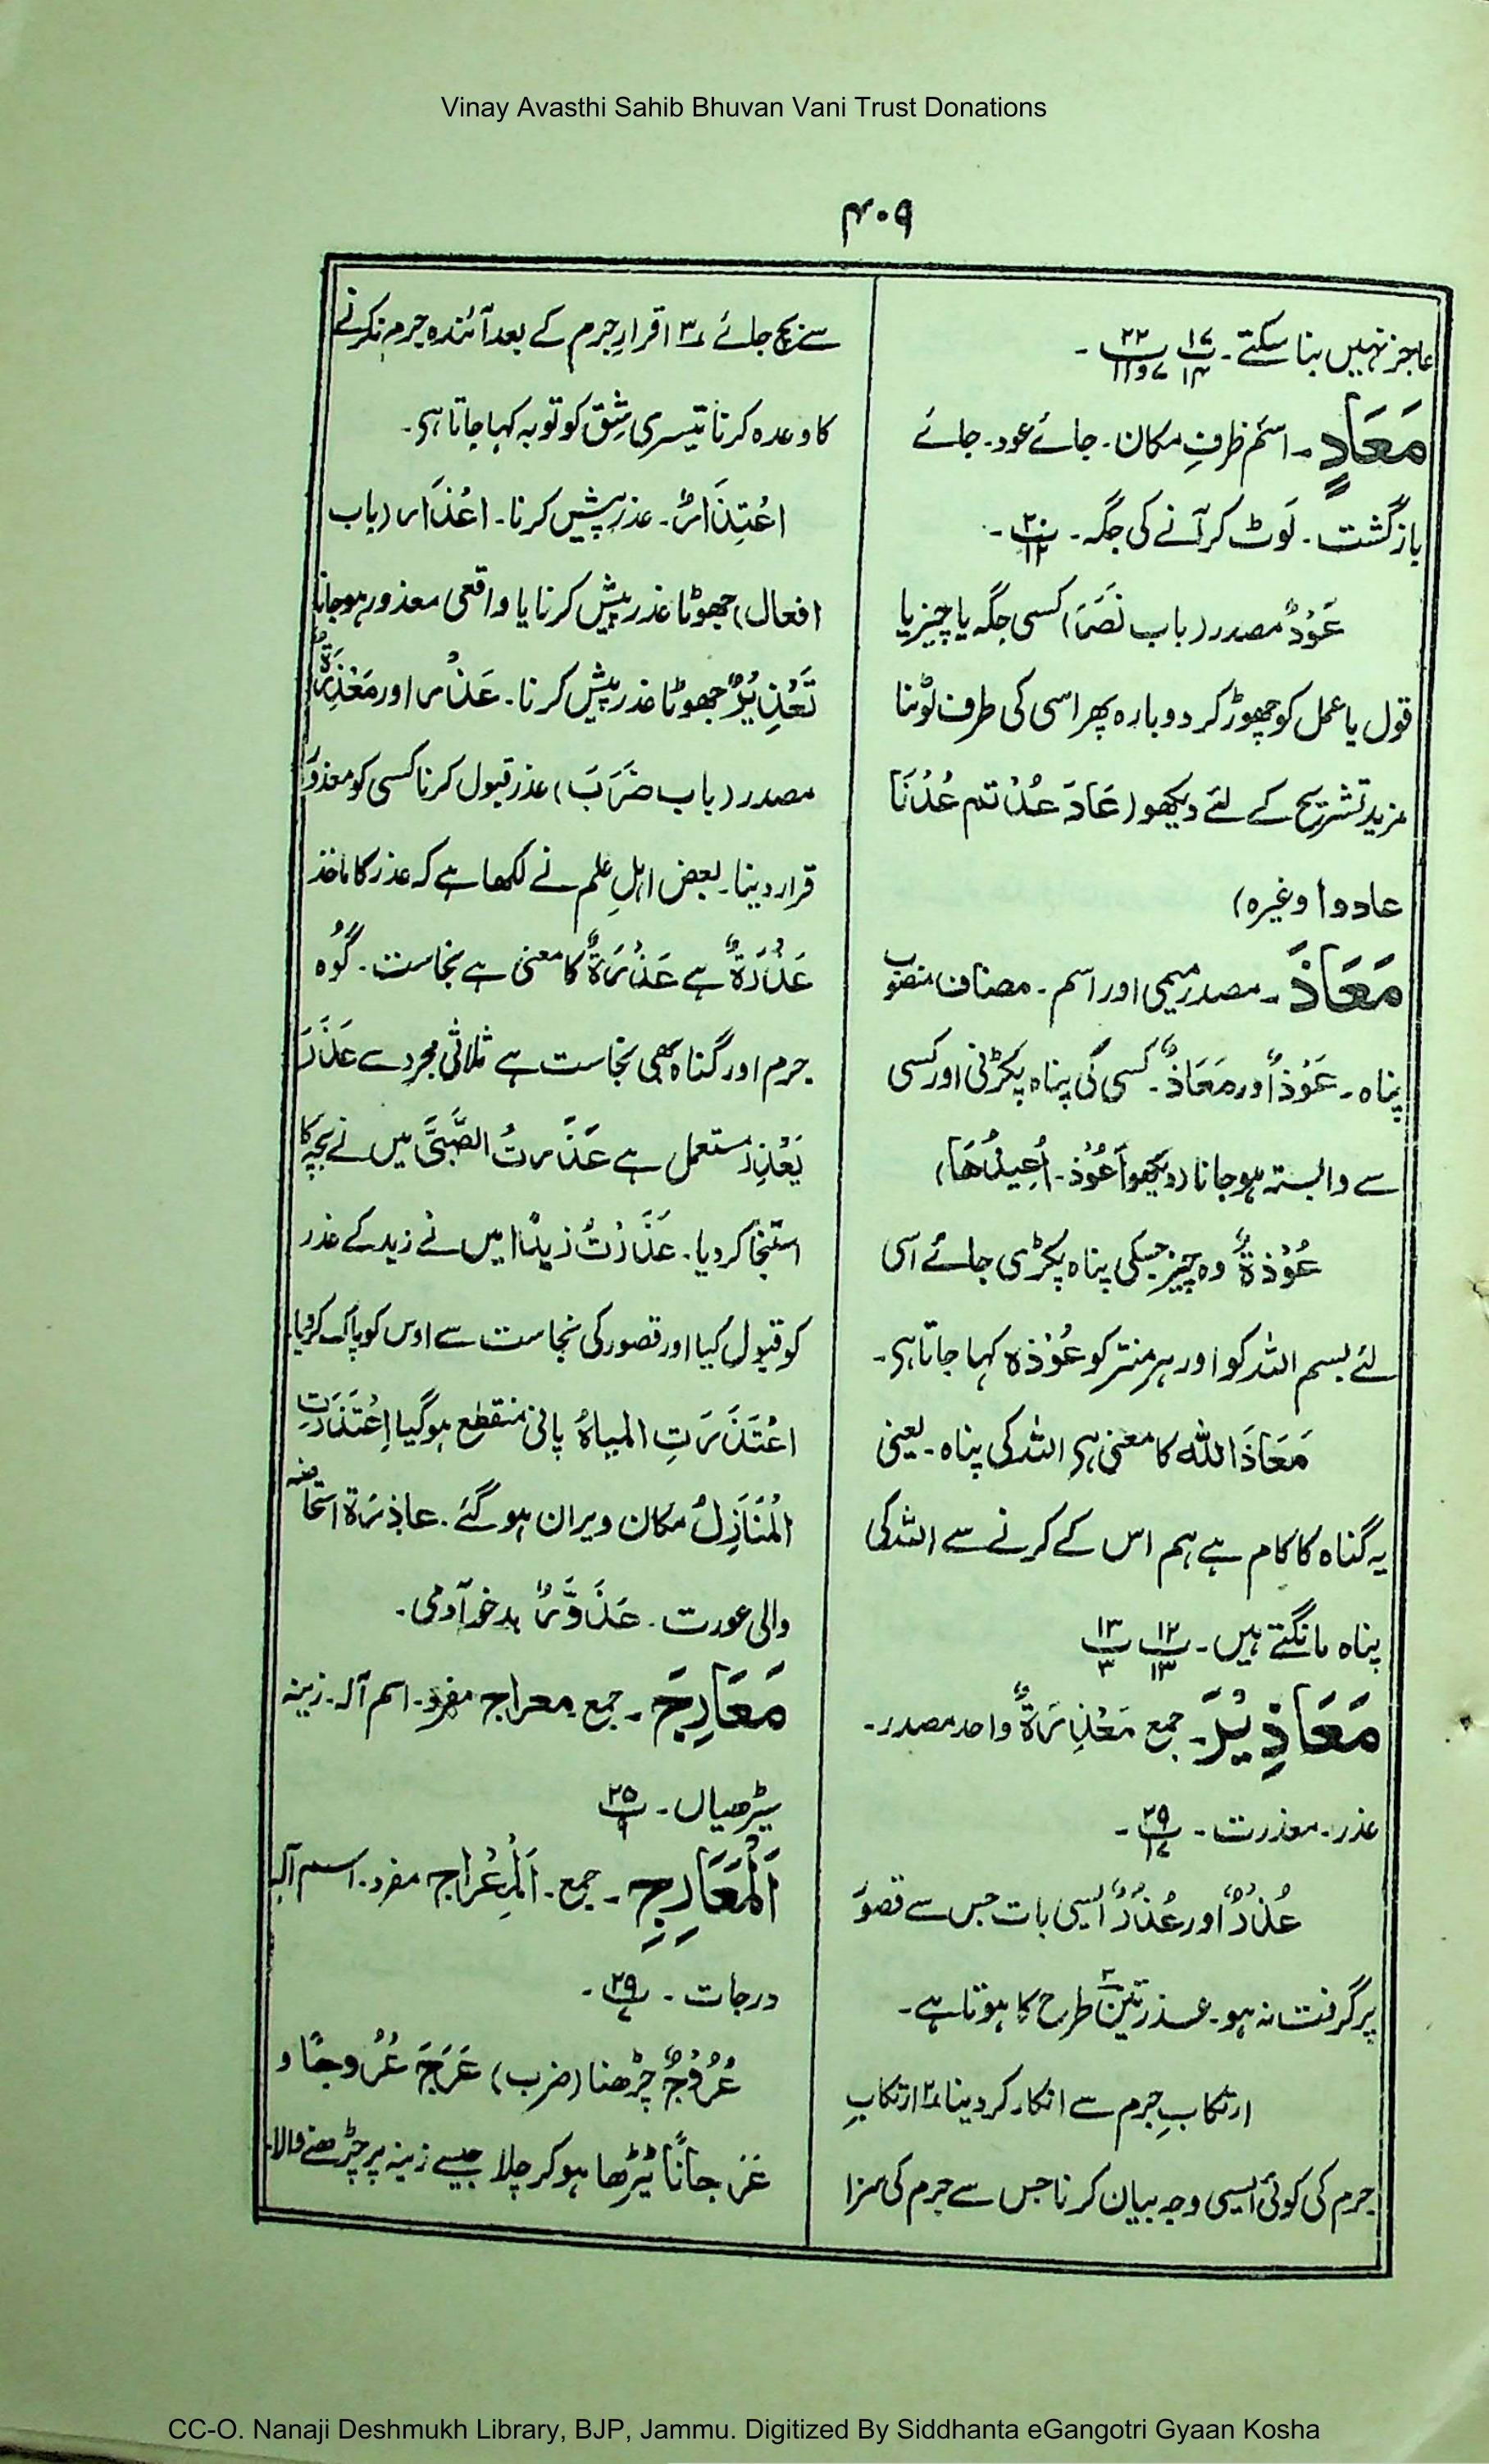 Vinay Avasthi Sahib Bhuvan Vani Trust Donations
۴۰۹
عاجز نہیں بنا سکتے۔ پ۱۷/۱۴ پ۲۲/۷و۱۱ ۔
مَعَادٍ۔ اسم ظرفِ مکان۔ جائے عود۔ جائے
بازگشت۔ لَوٹ کر آنے کی جگہ۔ پ۲۰/۱۲ ۔
عَوْدٌ مصدر (باب نَصَرَ) کسی جگہ یا چیز یا
قول یا عمل کو چھوڑ کر دوبارہ پھر اسی کی طرف لَوٹنا
مزید تشریح کے لئے دیکھو (عَادَ عُدْتم عُدْنَا
عادوا وغیرہ)
مَعَاذَ۔ مصدر میمی اور اسم۔ مضاف منصوب
پناہ۔ عَوْذٌ اور مَعَاذٌ۔ کسی کی پناہ پکڑنی اور کسی
سے وابستہ ہو جانا (دیکھو اَعُوْذ۔ اُعِیذُھَا)
عُوْذَةٌ وہ چیز جسکی پناہ پکڑی جائے اسی
لئے بسم اللہ کو اور ہر منتر کو عُوْذہ کہا جاتا ہی۔
مَعَاذَ اللہ کا معنی ہی اللہ کی پناہ۔ یعنی
یہ گناہ کا کام ہے ہم اس کے کرنے سے اللہ کی
پناہ مانگتے ہیں۔ پ۱۲/۱۳ پ۱۳/۳
مَعَاذِیْرَ۔ جمع مَعْذِرَةٌ واحد مصدر۔
عذر۔ معذرت۔ پ۲۹/۱۷ ۔
عُذْرٌ اور عُذُرٌ ایسی بات جس سے قصور
پر گرفت نہ ہو۔ عذر تین۳ طرح کا ہوتا ہے۔
ارتکابِ جرم سے انکار کر دینا ۲ ارتکابِ
جرم کی کوئی ایسی وجہ بیان کرنا جس سے جرم کی سزا
سے بچ جائے ۳ اقرارِ جرم کے بعد آئندہ جرم نکرنے
کا وعدہ کرنا تیسری شِق کو توبہ کہا جاتا ہی۔
اعْتِذَارٌ۔ عذر پیش کرنا۔ اعْذَار (باب
افعال) جھوٹا عذر پیش کرنا یا واقعی معذور ہو جانا
تَعْذِیْرٌ جھوٹا عذر پیش کرنا۔ عَذْر اور مَعْذِرَةٌ
مصدر (باب ضَرَبَ) عذر قبول کرنا کسی کو معذور
قرار دینا۔ بعض اہلِ علم نے لکھا ہے کہ عذر کا ماخذ
عَذْرَةٌ ہے عَذْرَةٌ کا معنی ہے نجاست۔ گُوہ
جرم اور گناہ بھی نجاست ہے ثلاثی مجرد سے عَذَرَ
یَعْذِرُ مستعمل ہے عَذَّرتُ الصَّبِیَّ میں نے بچہ کا
استنجا کر دیا۔ عَذَرْتُ زیدًا میں نے زید کے عذر
کو قبول کیا اور قصور کی نجاست سے اوس کو پاک کر دیا۔
اعْتَذَرَتِ المیاہُ پانی منقطع ہو گیا اِعْتَذَرَتِ
الْمَنَازِلُ مکان ویران ہو گئے۔ عاذِرَة استحاضہ
والی عورت۔ عَذَوَّرٌ بدخو آدمی۔
مَعَارِجَ۔ جمع معراج مفرد۔ اسم آلہ۔ زینہ
سیڑھیاں۔ پ۲۵/۹
اَلْمَعَارِجِ۔ جمع۔ اَلْمِعْراج مفرد۔ اسم آلہ
درجات۔ پ۲۹/۷ ۔
عُرُوْجٌ چڑھنا (ضرب) عَرَجَ عُرُوجًا و
عَرَجانًا ٹیڑھا ہو کر چلا جیسے زینہ پر چڑھنے والا۔
CC-O. Nanaji Deshmukh Library, BJP, Jammu. Digitized By Siddhanta eGangotri Gyaan Kosha